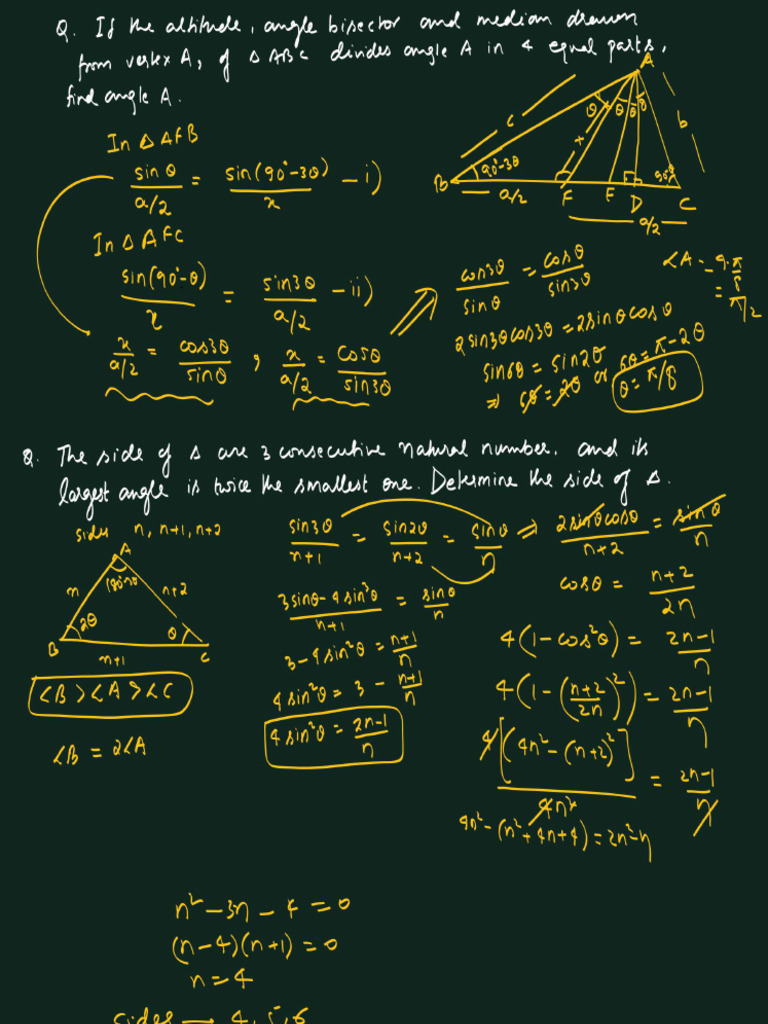 Q. If the altitude, angle bisector and median drawn
from vertex A, of Δ ABC divides angle A in 4 equal parts,
find angle A.
A
θ θ θ θ
c
x
b
90°-3θ
B
a/2
F
E
D
C
a/2
In Δ AFB
sin θ / a/2 = sin(90°-3θ) / x - i)
In Δ AFC
sin(90°-θ) / x = sin3θ / a/2 - ii)
x / a/2 = cos3θ / sinθ , x / a/2 = cosθ / sin3θ
cos3θ / sinθ = cosθ / sin3θ
2sin3θcos3θ = 2sinθcosθ
sin6θ = sin2θ
⇒ 6θ = 2θ or 6θ = π-2θ
θ = π/8
∠A = 4.π/8
= π/2
Q. The side of Δ are 3 consecutive natural number. and its
largest angle is twice the smallest one. Determine the side of Δ.
sides n, n+1, n+2
A
n
180°-3θ
n+2
B
2θ
θ
C
n+1
∠B > ∠A > ∠C
∠B = 2∠A
sin3θ / n+1 = sin2θ / n+2 = sinθ / n ⇒ 2sinθcosθ / n+2 = sinθ / n
3sinθ-4sin³θ / n+1 = sinθ / n
3-4sin²θ = n+1 / n
4sin²θ = 3 - n+1 / n
4sin²θ = 2n-1 / n
cosθ = n+2 / 2n
4(1-cos²θ) = 2n-1 / n
4(1-(n+2 / 2n)²) = 2n-1 / n
4[4n²-(n+2)²] / 4n² = 2n-1 / n
4n²-(n²+4n+4) = 2n²-n
n²-3n-4 = 0
(n-4)(n+1) = 0
n = 4
sides → 4, 5, 6